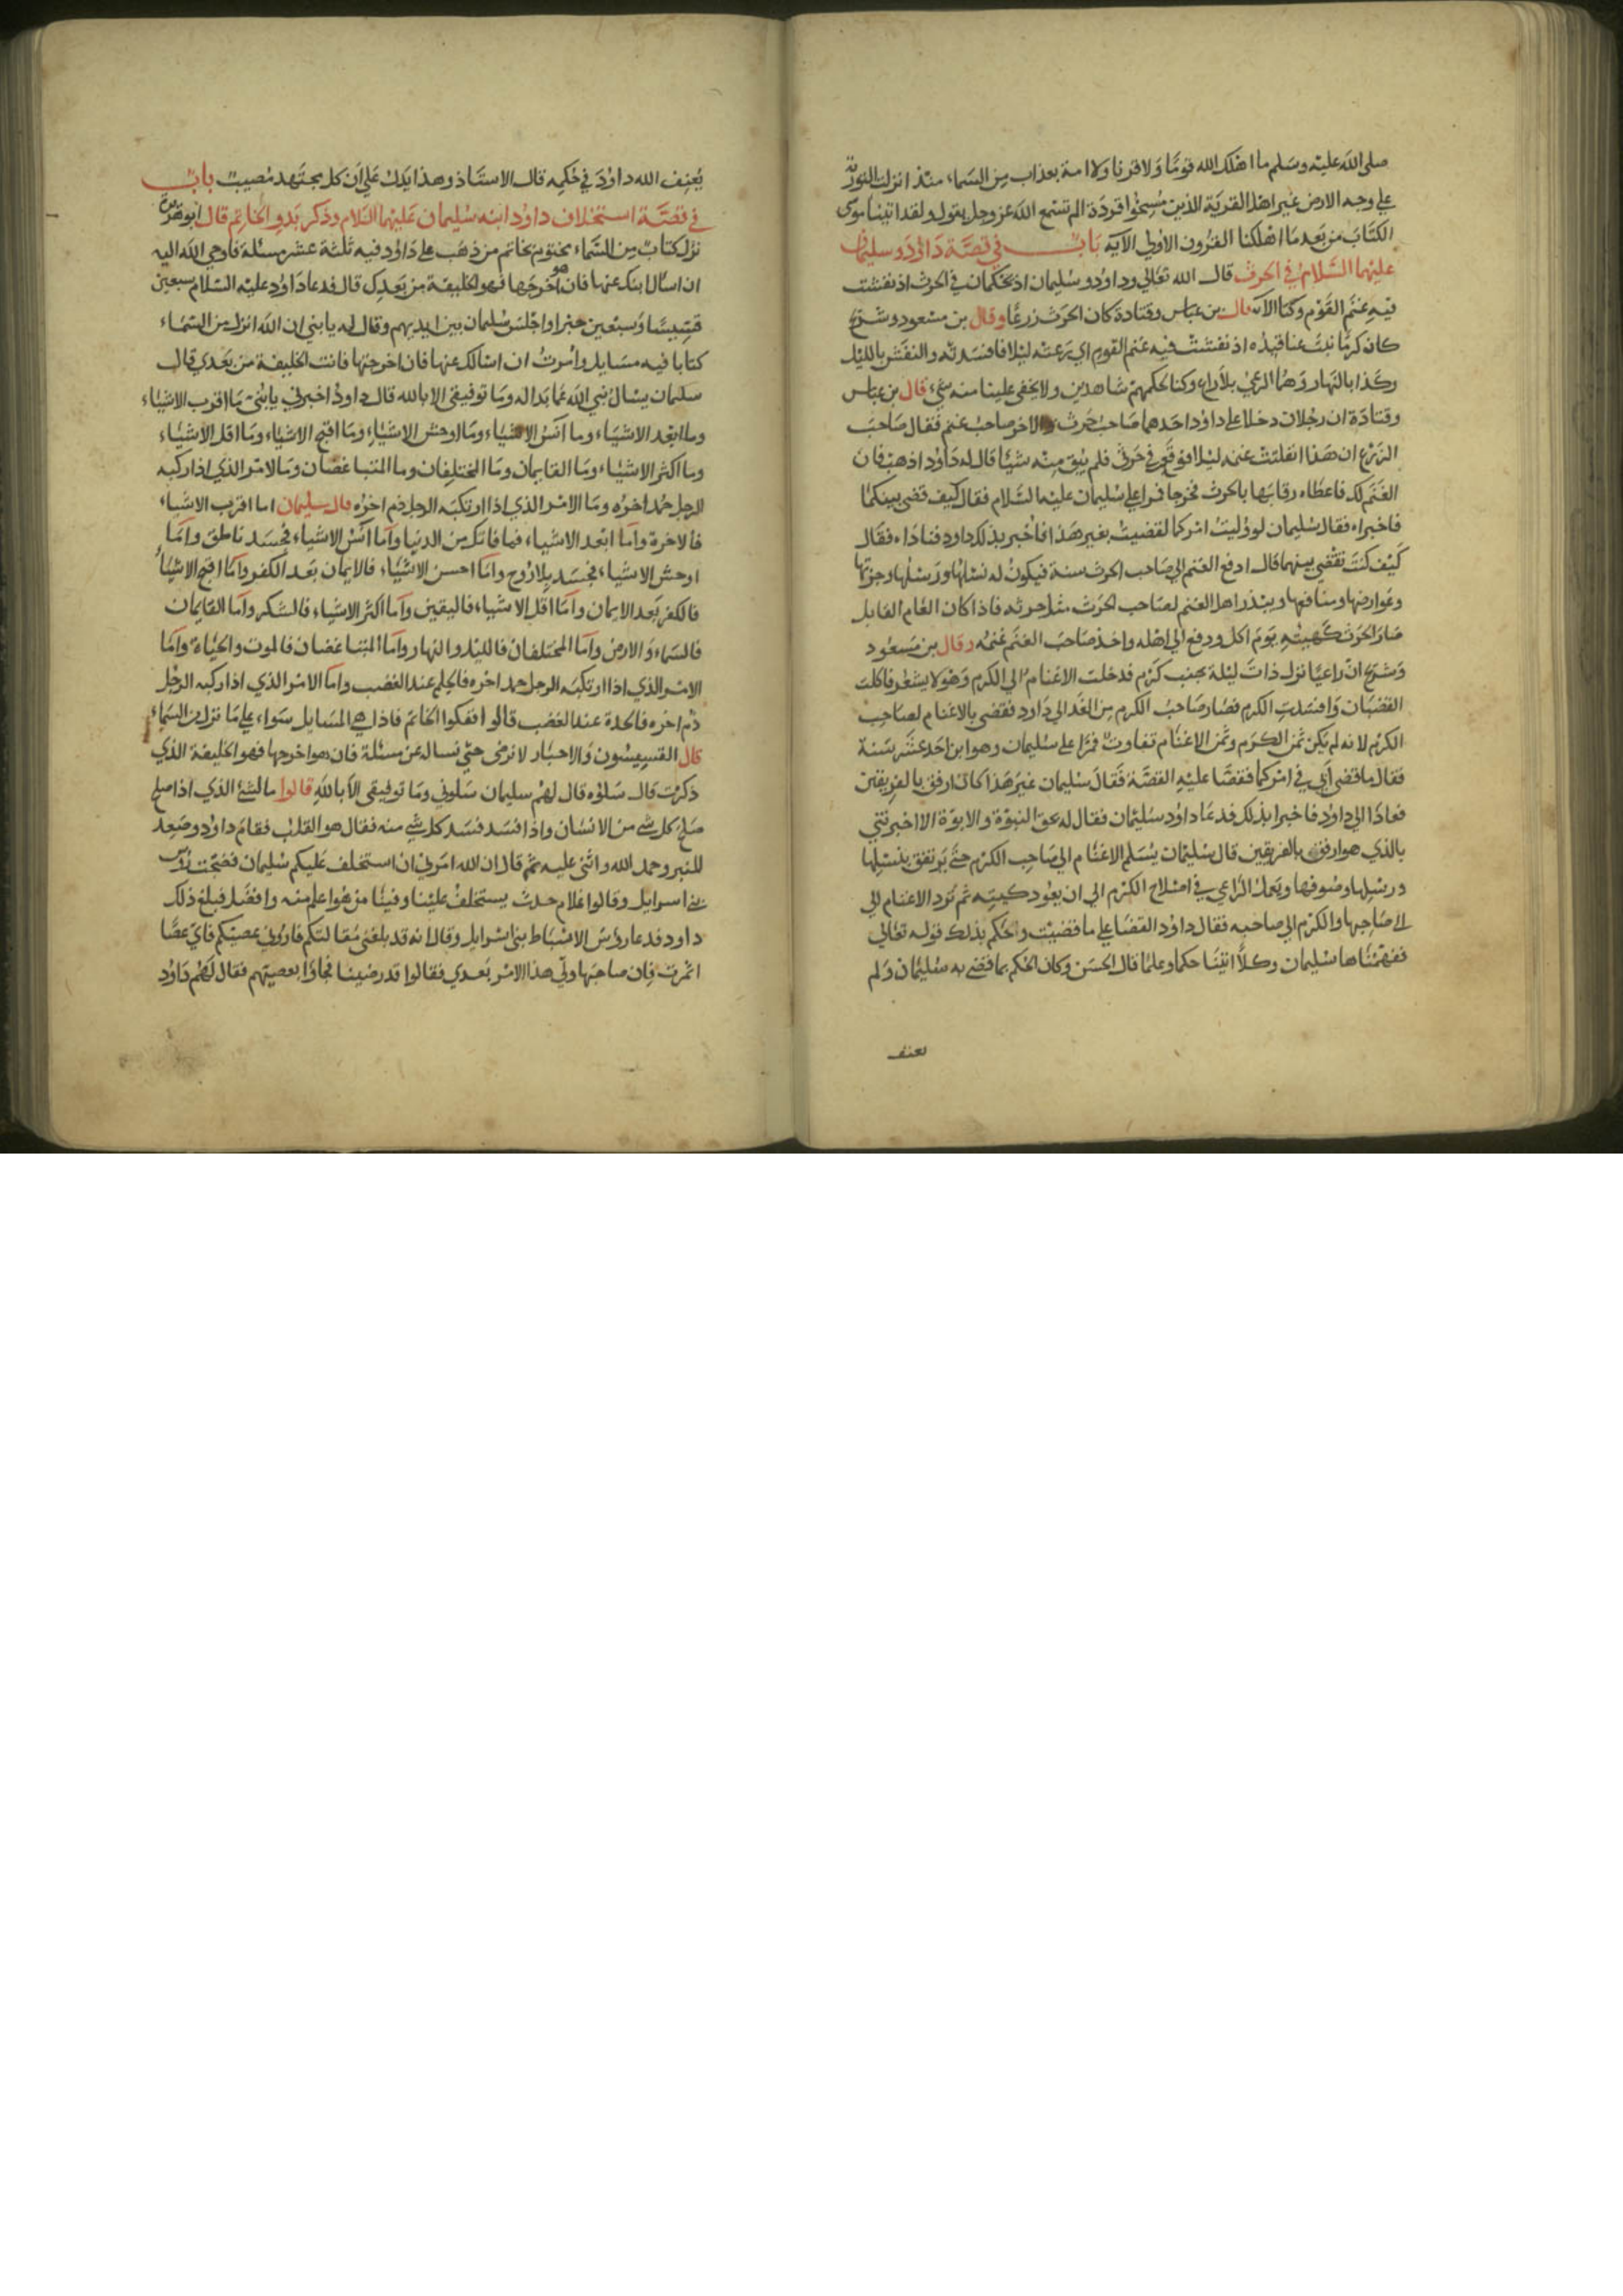 صلى الله عليه وسلم ما اهلك الله قوما ولا قرنا ولا امة بعذاب من السماء منذ انزلت التورية
على وجه الارض غير اهل القرية الذين مسخوا قردة الم تسمع الله عز وجل يقول ولقد اتينا موسى
الكتاب من بعد ما اهلكنا القرون الاولى الآية باب في قصة داؤد وسليمان
عليهما السلام في الحرث قال الله تعالى وداود وسليمان اذ يحكمان في الحرث اذ نفشت
فيه غنم القوم وكنا الآية قال بن عباس وقتادة كان الحرث زرعا وقال بن مسعود وشريح
كان كرما نبت عناقيده اذ نفشت فيه غنم القوم اي رعته ليلا فافسدته والنفش بالليل
وكذا بالنهار وهما الرعي بلا راع وكنا لحكمهم شاهدين ولا يخفى علينا منه شيء قال بن عباس
وقتادة ان رجلان دخلا على داود احدهما صاحب حرث والاخر صاحب غنم فقال صاحب
الزرع ان هذا انفلتت غنمه ليلا فوقعن في حرثي فلم يبق منه شيئا قال له داود اذهب فان
الغنم لك فاعطاه رقابها بالحرث فخرجا فمرا على سليمان عليه السلام فقال كيف قضى بينكما
فاخبراه فقال سليمان لو وليت امركما لقضيت بغير هذا فاخبر بذلك داود فناداه فقال
كيف كنت تقضي بينهما قال ادفع الغنم الى صاحب الحرث سنة فيكون له نسلها ورسلها وجزتها
وعوارضها ومنافعها ويبذر اهل الغنم لصاحب الحرث مثل حرثه فاذا كان العام القابل
صار الحرث كهيته يوم اكل ودفع الى اهله واخذ صاحب الغنم غنمه وقال بن مسعود
وشريح ان راعيا نزل ذات ليلة بجنب كرم فدخلت الاغنام الى الكرم وهو لا يشعر فاكلت
القضبان وافسدت الكرم فصار صاحب الكرم من الغد الى داود فقضى بالاغنام لصاحب
الكرم لانه لم يكن ثمن الكرم وثمن الاغنام تفاوت فمرا على سليمان وهو ابن احد عشر سنة
فقال ما قضى ابي في امركما فقصا عليه القصة فقال سليمان غير هذا كان ارفق بالفريقين
فعادا الى داود فاخبرا بذلك فدعا داود سليمان فقال له بحق النبوة والابوة الا اخبرتني
بالذي هو ارفق بالفريقين قال سليمان يسلم الاغنام الى صاحب الكرم حتى يرتفق بنسلها
ورسلها وصوفها ويعمل الراعي في اصلاح الكرم الى ان يعود كهيته ثم ترد الاغنام الى
الى صاحبها والكرم الى صاحبه فقال داود القضا على ما قضيت وحكم بذلك قوله تعالى
ففهمناها سليمان وكلا اتينا حكما وعلما قال الحسن وكان الحكم بما قضى به سليمان ولم
يعنف
يعنف الله داود في حكمه قال الاستاذ وهذا يدل على ان كل مجتهد مصيب باب
في قصة استخلاف داود ابنه سليمان عليهما السلام وذكر بدو الخاتم قال ابو هريرة
نزل كتاب من السماء مختوم بخاتم من ذهب على داود فيه ثلثة عشر مسئلة فاوحى الله اليه
ان اسال ابنك عنها فان هو اخرجها فهو الخليفة من بعدك قال فدعا داود عليه السلام سبعين
قسيسا وسبعين حبرا واجلس سليمان بين ايديهم وقال له يا بني ان الله انزل من السماء
كتابا فيه مسايل وامرت ان اسالك عنها فان اخرجتها فانت الخليفة من بعدي قال
سليمان يسال نبي الله عما بدا له وما توفيقي الا بالله قال داود اخبرني يا بنى ما اقرب الاشياء
وما ابعد الاشياء وما آنس الاشياء وما اوحش الاشياء وما اقبح الاشياء وما اقل الاشياء
وما اكثر الاشياء وما القايمان وما المختلفان وما المتباغضان وما الامر الذي اذا ركبه
الرجل حمد اخره وما الامر الذي اذا ارتكبه الرجل ذم اخره قال سليمان اما اقرب الاشياء
فالاخرة واما ابعد الاشياء فما فاتك من الدنيا واما آنس الاشياء فجسد ناطق واما
اوحش الاشياء فجسد بلا روح واما احسن الاشياء فالايمان بعد الكفر واما اقبح الاشيا
فالكفر بعد الايمان واما اقل الاشياء فاليقين واما اكثر الاشياء فالشك واما القايمان
فالسماء والارض واما المختلفان فالليل والنهار واما المتباغضان فالموت والحياة واما
الامر الذي اذا ارتكبه الرجل حمد اخره فالحلم عند الغضب واما الامر الذي اذا ركبه الرجل
ذم اخره فالحدة عند الغضب قالوا ففكوا الخاتم فاذا هي المسايل سواء على ما نزل من السماء
قال القسيسون والاحبار لا نرضى حتى نساله عن مسئلة فان هو اخرجها فهو الخليفة الذي
ذكرت قال سلوه قال لهم سليمان سلوني وما توفيقي الا بالله قالوا ما الشئ الذي اذا صلح
صلح كل شي من الانسان واذا فسد فسد كل شي منه فقال هو القلب فقام داود وصعد
المنبر وحمد الله واثنى عليه ثم قال ان الله امرني ان استخلف عليكم سليمان فضجت رؤس
بني اسرايل وقالوا غلام حدث يستخلف علينا وفينا من هو اعلم منه وافضل فبلغ ذلك
داود فدعا رؤس الاسباط بنى اسرايل وقال انه قد بلغنى مقالتكم فاروني عصيتكم فاي عصا
اثمرت فان صاحبها ولي هذا الامر بعدي فقالوا قد رضينا فجاؤا بعصيتهم فقال لهم داود